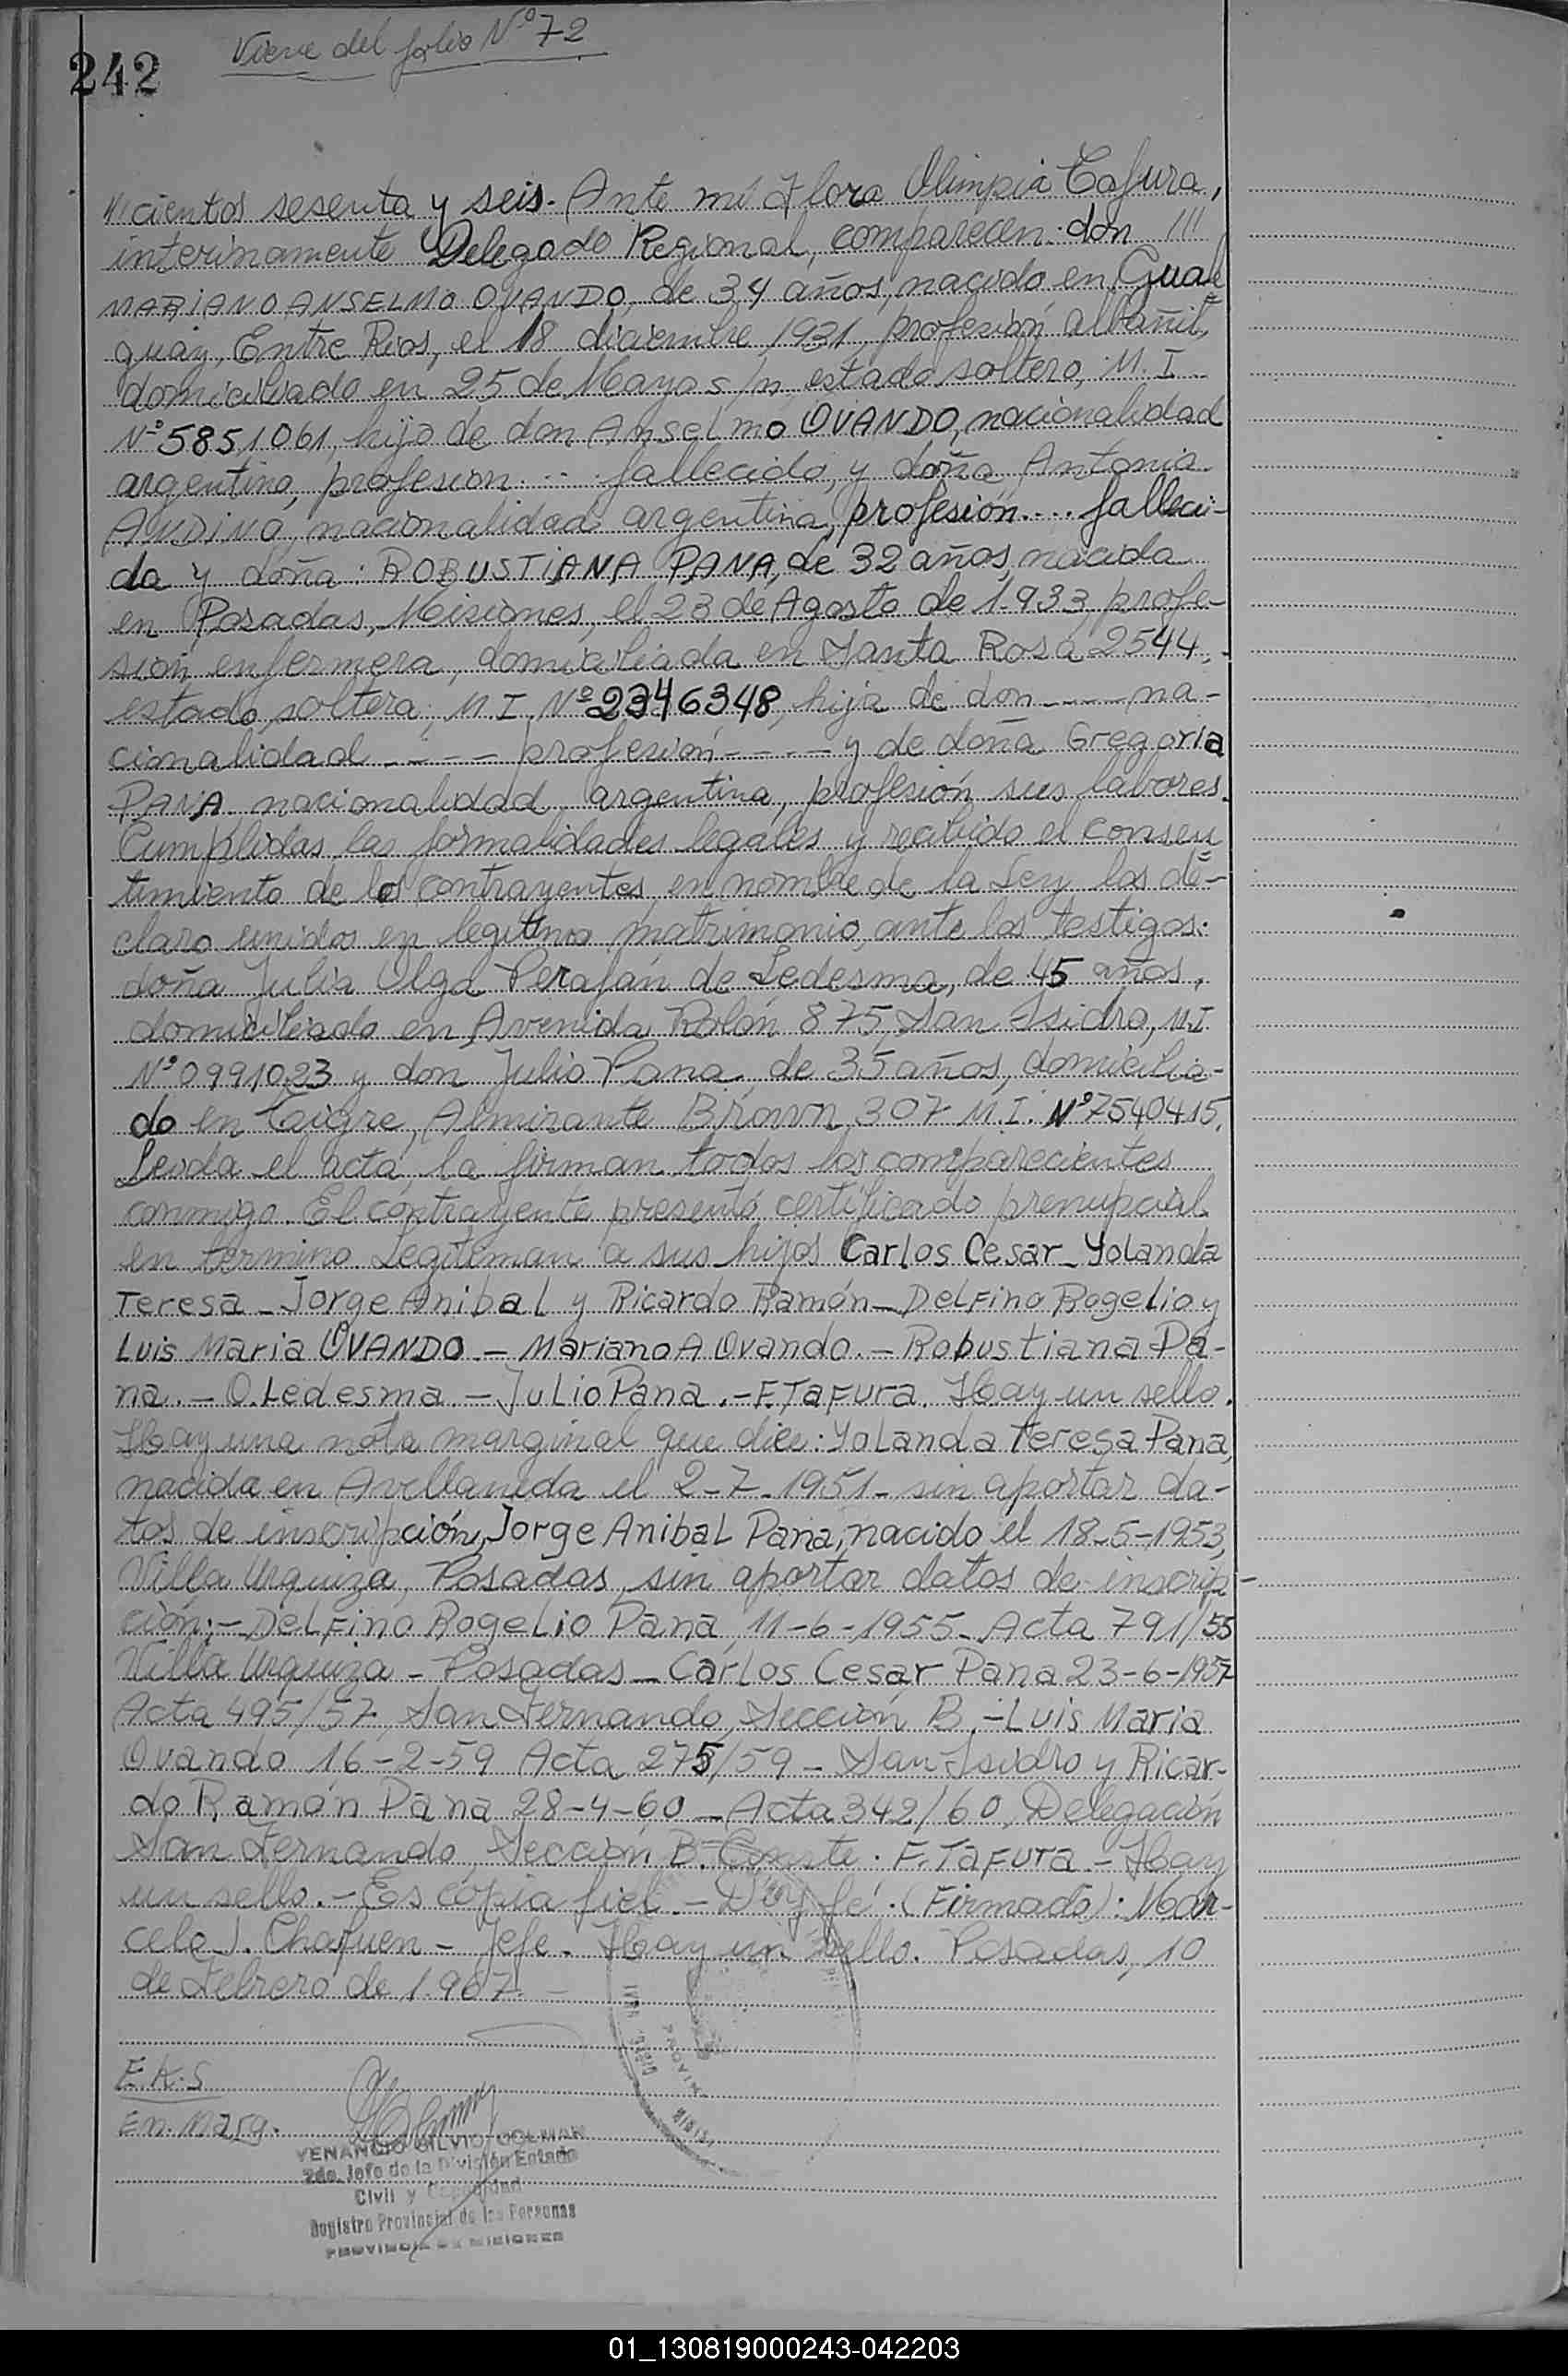 Viene del folio Nº 72
242
///cientos sesenta y seis. Ante mí Flora Olimpia Tafura,
interinamente Delegado Regional, comparecen: don ///
MARIANO ANSELMO OVANDO, de 34 años, nacido en Guale
guay, Entre Rios, el 18 diciembre 1931, profesión albañil,
domiciliado en 25 de Mayo s/n, estado soltero, M. I.
Nº 5851061, hijo de don Anselmo OVANDO, nacionalidad
argentina, profesion ... fallecido, y doña Antonia
ANDINO, nacionalidad argentina, profesión .... falleci-
da y doña: ROBUSTIANA PANA, de 32 años, nacida
en Posadas, Misiones, el 23 de Agosto de 1.933, profe-
sión enfermera, domiciliada en Santa Rosa 2544,-
estado soltera, M.I. Nº 2346348, hija de don ---- na-
cionalidad ---- profesión ---- y de doña Gregoria
PANA nacionalidad argentina, profesión sus labores.
Cumplidas las formalidades legales y recibido el consen
timiento de los contrayentes, en nombre de la Ley los de-
claro unidos en legitimo matrimonio, ante los testigos:
doña Julia Olga Perafán de Ledesma, de 45 años,
domiciliado en Avenida Rolón 875, San Isidro, M.I
Nº 0991023 y don Julio Pana, de 35 años, domicilia-
do en Taigre, Almirante Brown 307 M.I. Nº 7540415.
Leida el acta, la firman todos los comparecientes
conmigo. El contrayente presentó certificado prenupcial
en termino. Legitiman a sus hijos Carlos Cesar - Yolanda
Teresa - Jorge Anibal y Ricardo Ramón - Delfino Rogelio y
Luis Maria OVANDO. - Mariano A Ovando. - Robustiana Pa-
na. - O. Ledesma. - Julio Pana. - F. Tafura. Hay un sello.
Hay una nota marginal que dice: Yolanda Teresa Pana,
nacida en Avellaneda el 2-7-1951 - sin aportar da-
tos de inscripción, Jorge Anibal Pana, nacido el 18-5-1953,
Villa Urquiza, Posadas, sin aportar datos de inscrip-
ción; - Delfino Rogelio Pana, 11-6-1955 - Acta 791/55
Villa Urquiza - Posadas - Carlos Cesar Pana 23-6-1957
Acta 495/57, San Fernando, Sección B. - Luis Maria
Ovando 16-2-59 Acta 275/59 - San Isidro y Ricar-
do Ramón Pana 28-4-60 - Acta 342/60, Delegación
San Fernando, Sección B. Conste. F. Tafura - Hay
un sello. - Es copia fiel - Doy fé. (Firmado): Mar-
celo J. Chafuen - Jefe. Hay un sello. Posadas, 10
de Febrero de 1.967. -
E.K.S
En. Marg.
VENANCIO SILVIO GOLMAN
2do. Jefe de la División Estado
Civil y Capacidad
Registro Provincial de las Personas
PROVINCIA DE MISIONES
01_130819000243-042203